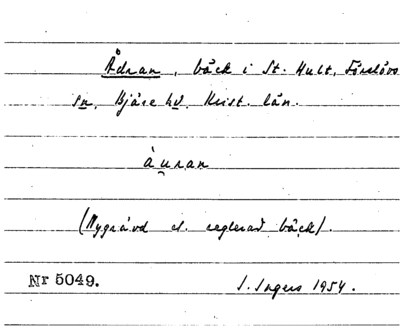 Ådran, bäck i St. Hult, Förslövs
sn, Bjäre hd, Krist. län.
áu̯ran
(Nygrävd el. reglerad bäck).
Nr 5049.
I. Ingers 1954.